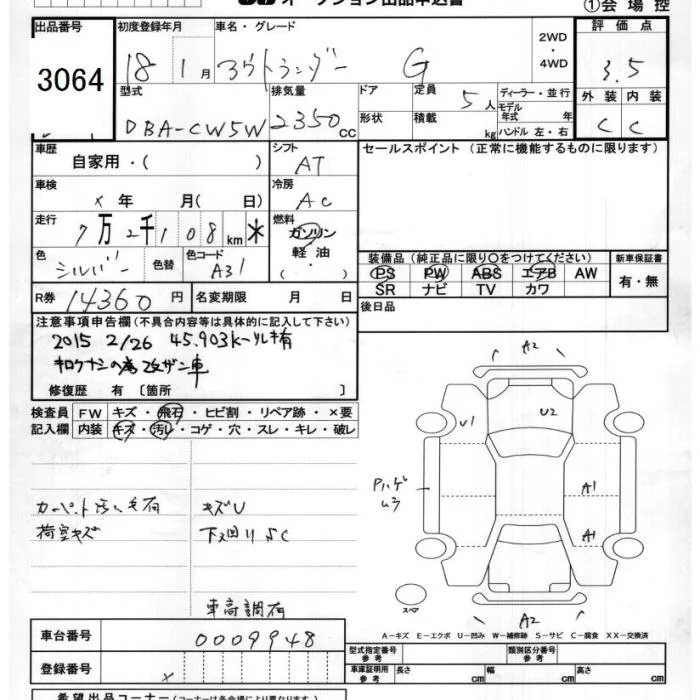 オークション出品申込書
①会場控
出品番号 3064
初度登録年月 18 1月
車名・グレード アウトランダー G
2WD・4WD
評価点 3.5
外装 内装
C C
型式 DBA-CW5W
排気量 2350cc
ドア 形状
定員 5人
積載 kg
ディーラー・並行
モデル年式 年
ハンドル 左・右
車歴 自家用・( )
シフト AT
セールスポイント (正常に機能するものに限ります)
車検 × 年 月( 日)
冷房 AC
走行 7万2千108km *
燃料 ガソリン 軽油・
色 シルバー 色替
色コード A31
装備品 (純正品に限り○をつけてください)
新車保証書
PS PW ABS エアB AW
SR ナビ TV カワ
有・無
R券 14360円
名変期限 月 日
後日品
注意事項申告欄 (不具合内容等は具体的に記入して下さい)
2015 2/26 45.903k
修復歴 有 [箇所 ]
検査員 FW キズ・飛石・ヒビ割・リペア跡・×要
記入欄 内装 キズ・汚レ・コゲ・穴・スレ・キレ・破レ
カーペット汚レ毛有
荷室キズ
キズU
下回りSC
車高調有
A2
U1
U2
Pハゲ
A1
A1
スペア
A2
A-キズ E-エクボ U-凹み W-補修跡 S-サビ C-腐食 XX-交換済
車台番号 0009948
型式指定番号 参考
類別区分番号 参考
登録番号 ×
車庫証明用 参考
長さ cm 幅 cm 高さ cm
希望出品コーナー